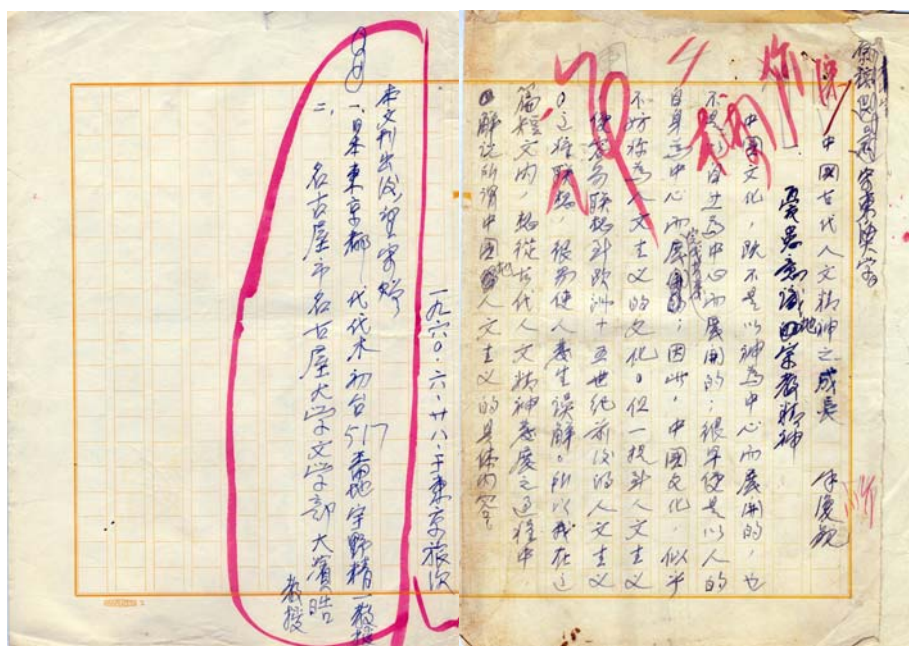 中國古代人文精神之成長　徐復觀
一、憂患意識的宗教精神
中國文化，既不是以神為中心而展開的，也
不是以自然為中心而展開的；很早便是以人的
自身為中心而展開；因此，中國文化，似乎
不妨称為人文主义的文化。但一提到人文主义
便容易聯想到欧洲十五世纪前後的人文主义
。这種联想，很易使人發生误解。所以我在这
篇短文内，想從古代人文精神發展之过程中
解说所謂中國人文主义的具体内容。
一九六〇・六・廿八・于東京旅次
本文刊出後望寄贈
一、日本東京都　代代木初台517番地宇野精一教授
二、名古屋市名古屋大学文学部大濱晧
教授